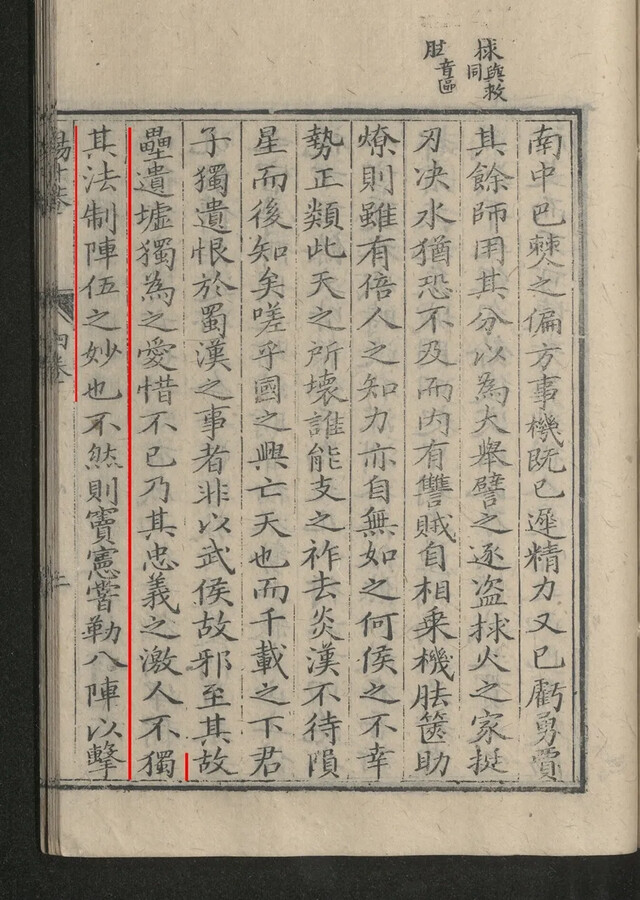 捄與救同
胠音區
南中巴僰之偏方事機既已遲精力又已虧勇賈
其餘師用其分以為大舉譬之逐盗捄火之家挺
刃决水猶恐不及而内有讐賊自相乗機胠篋助
燎則雖有倍人之知力亦自無如之何侯之不幸
勢正類此天之所壞誰能支之祚去炎漢不待隕
星而後知矣嗟乎國之興亡天也而千載之下君
子獨遺恨於蜀漢之事者非以武侯故邪至其故
壘遺墟獨為之愛惜不已乃其忠義之激人不獨
其法制陣伍之妙也不然則竇憲嘗勒八陣以擊